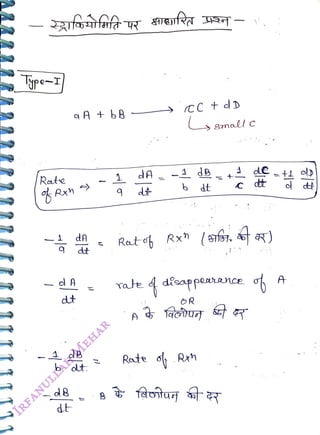 — स्ट्राकियोमिति पर आधारित प्रश्न —
Type-I
aA + bB ⟶ cC + dD
↳ small c
Rate of Rxn ⇒ - 1/a dA/dt = - 1/b dB/dt = + 1/c dC/dt = +1/d dD/dt
- 1/a dA/dt = Rat of Rxn (अभि. की दर)
- dA/dt = rate of disappearance of A
OR
A के विलोपन की दर
- 1/b dB/dt = Rate of Rxn
- dB/dt = B के विलोपन की दर
IRFANULLAH MEHAR